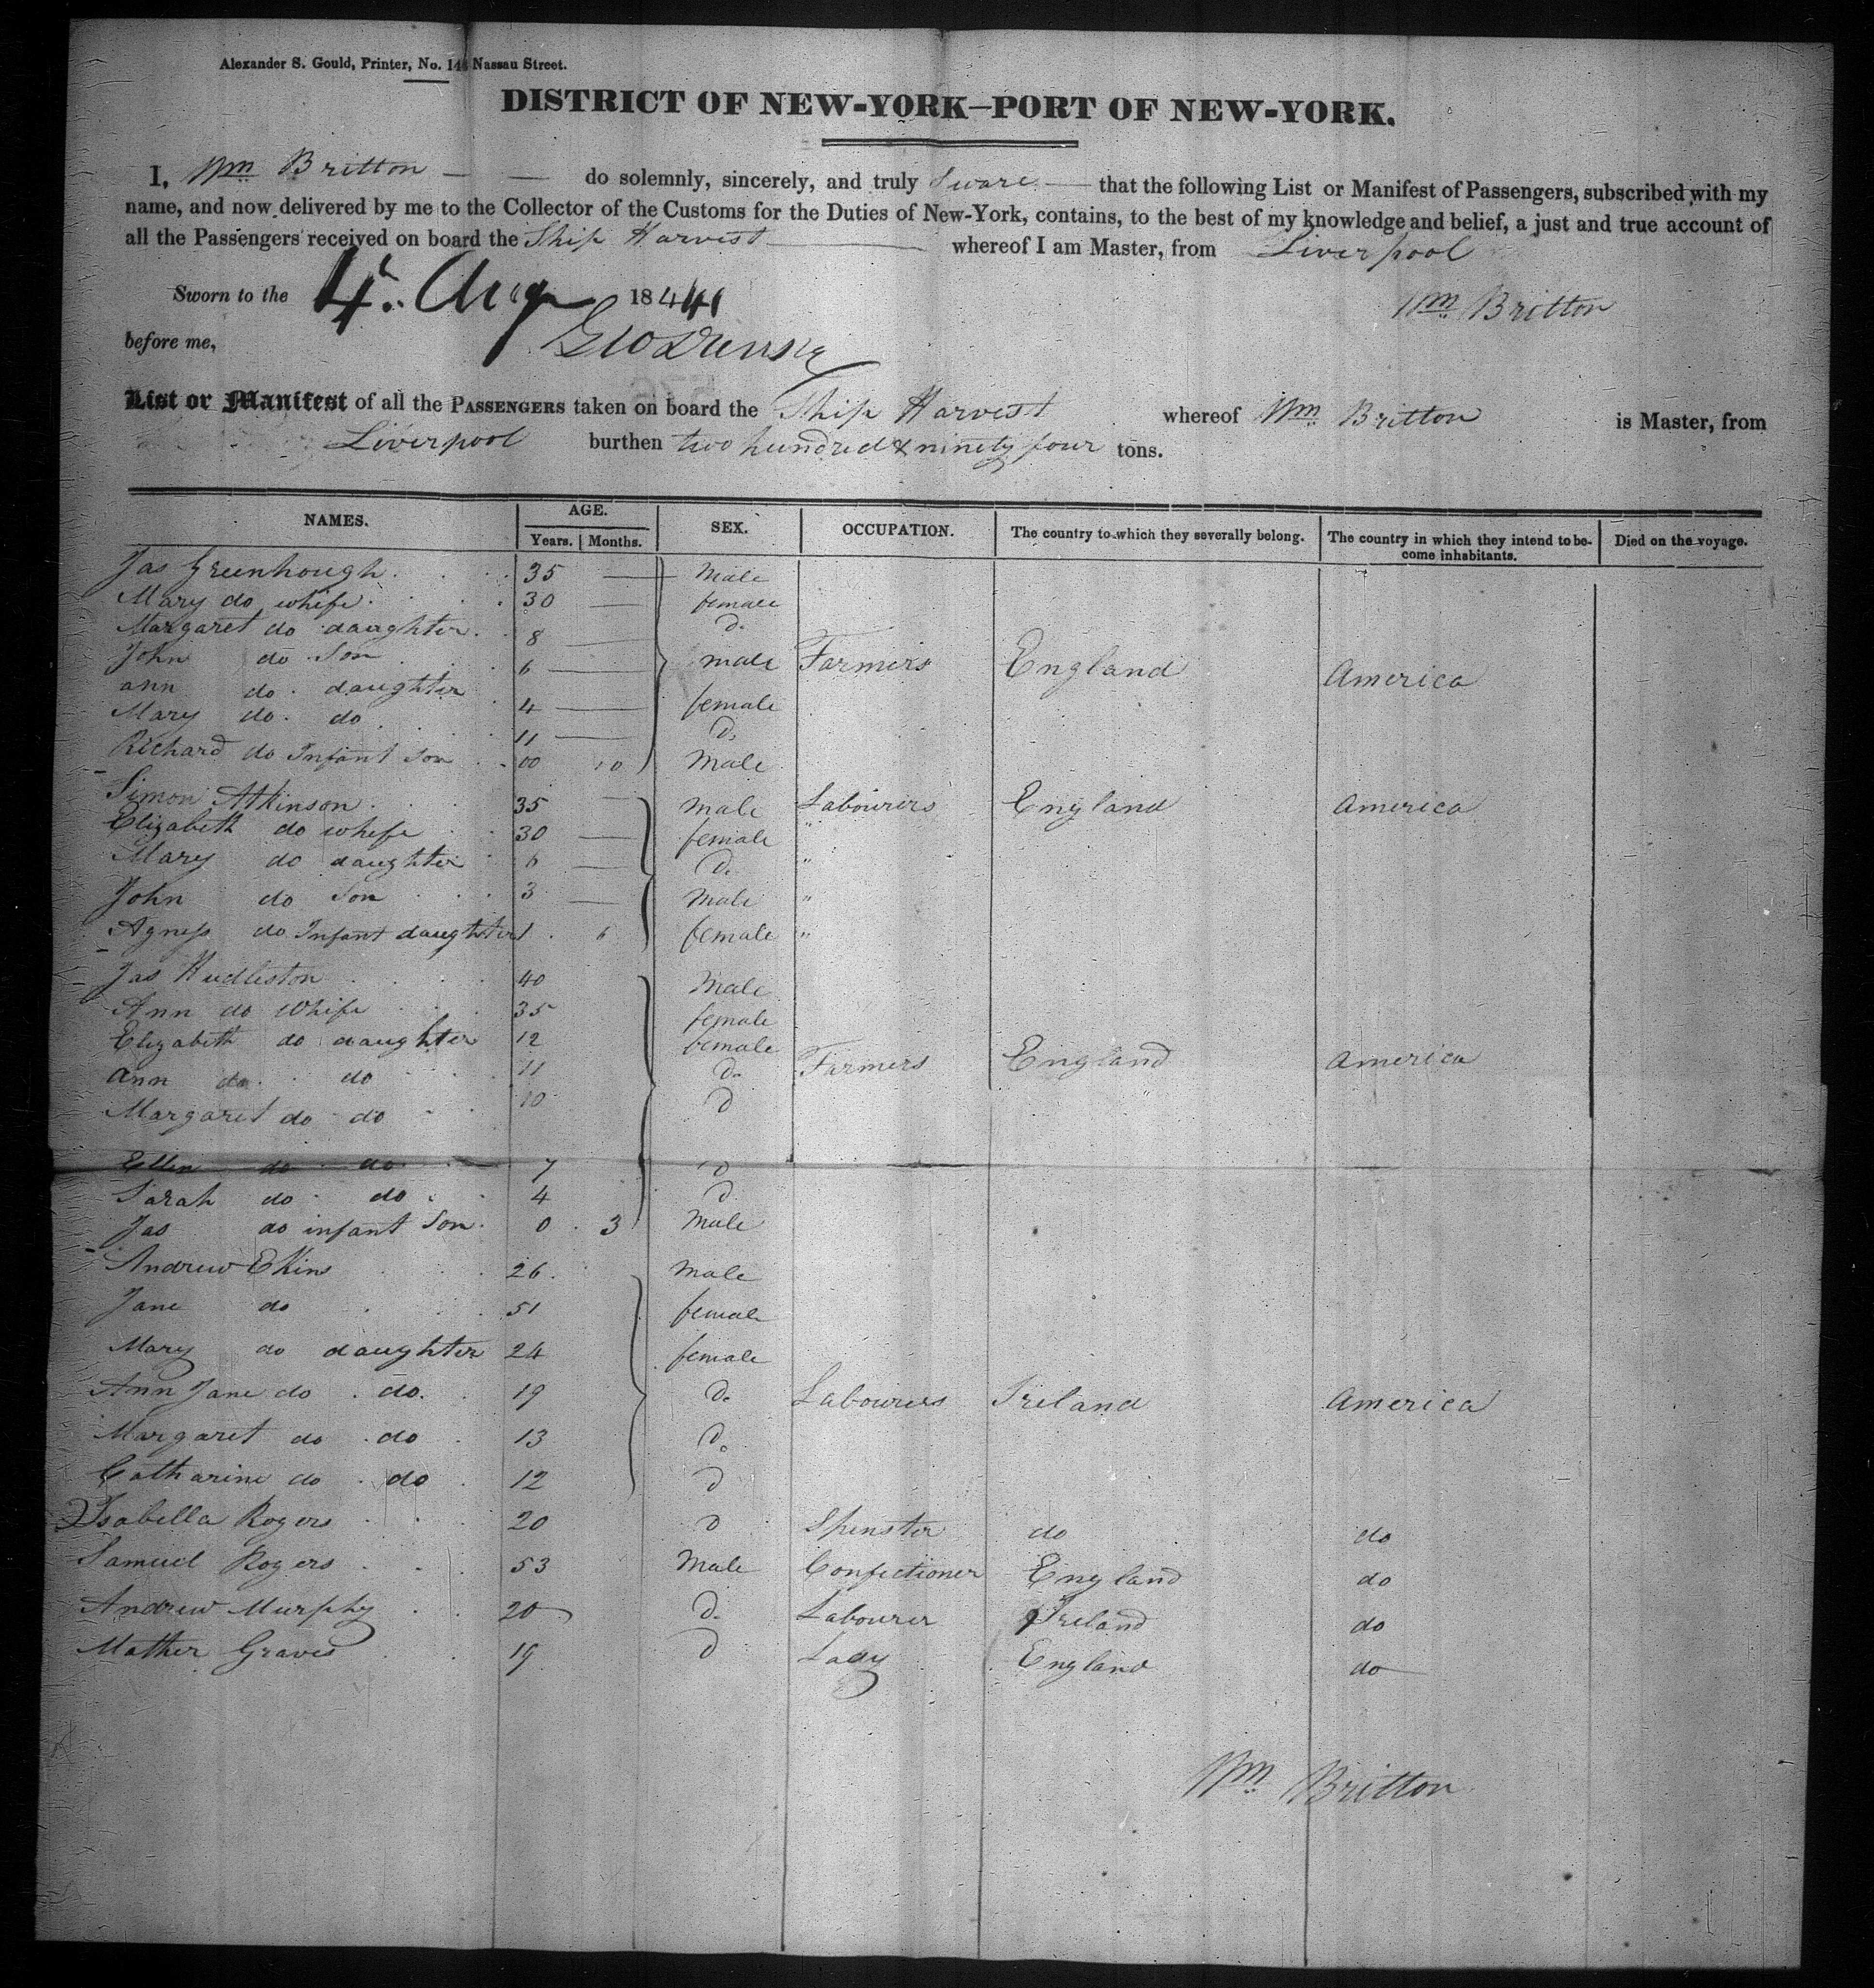 Alexander S. Gould, Printer, No. 144 Nassau Street.
DISTRICT OF NEW-YORK—PORT OF NEW-YORK.
I, Wm Britton — — do solemnly, sincerely, and truly Sware — that the following List or Manifest of Passengers, subscribed with my
name, and now delivered by me to the Collector of the Customs for the Duties of New-York, contains, to the best of my knowledge and belief, a just and true account of
all the Passengers received on board the Ship Harvest whereof I am Master, from Liverpool
Sworn to the 4. Aug 1841 Wm Britton
before me,
List or Manifest of all the PASSENGERS taken on board the Ship Harvest whereof Wm Britton is Master, from
Liverpool burthen two hundred & ninety four tons.
NAMES. AGE. Years. Months. SEX. OCCUPATION. The country to which they severally belong. The country in which they intend to become inhabitants. Died on the voyage.
Jas Greenhough 35 — Male
Mary do whife 30 — female
Margaret do daughter 8 — D.
John do Son 6 — male Farmers England America
ann do daughter 4 — female
Mary do do 11 — D.
Richard do Infant Son 00 10 Male
Simon Atkinson 35 — male Labourers England America
Elizabeth do whife 30 — female "
Mary do daughter 6 — D. "
John do Son 3 — Male "
Agness do Infant daughter 1 6 female "
Jas Hudleston 40 Male
Ann do Whife 35 female
Elizabeth do daughter 12 female
Ann do do 11 D. Farmers England America
Margaret do do 10 D
Ellen do do 7 D
Sarah do do 4 D
Jas do infant Son 0 3 Male
Andrew Ekins 26 Male
Jane do 51 female
Mary do daughter 24 female
Ann Jane do do 19 D. Labourers Ireland America
Margaret do do 13 D.
Catharine do do 12 D
Isabella Rogers 20 D Spinster do do
Samuel Rogers 53 Male Confectioner England do
Andrew Murphy 20 D. Labourer Ireland do
Mather Graves 19 D Lady England do
Wm Britton